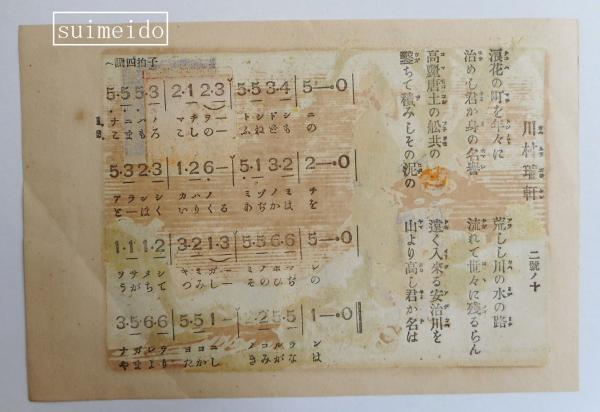 suimeido
川村瑞軒
二號ノ十
浪花の町を年々に
荒しし川の水の路
治めし君か身の名譽
流れて世々に殘るらん
高麗唐土の舩共の
遠く入來る安治川を
鑿ちて積みしその泥の
山より高し君か名は
子拍四調〜
5·5 5·3 2·1 2·3 5·5 3·5 5—·0
ナニハノ マチヲー トシドシ ニ
こまもろ こしの— ふねども の
5·3 2·3 1·2 6— 5·1 3·2 2—·0
アラシシ カハノ ミヅノミ チ
と—ほく いりくる あぢかは を
1·1 1·2 3·2 1·3 5·5 6·6 5—·0
ヲサメシ キミガ— ミノホマ レ
うがちて つみし— そのひぢ の
3·5 6·6 5·5 1— 2·2 5·5 1—·0
ナガレテ ヨヨニ ノコルラ ン
やまより たかし きみがな は